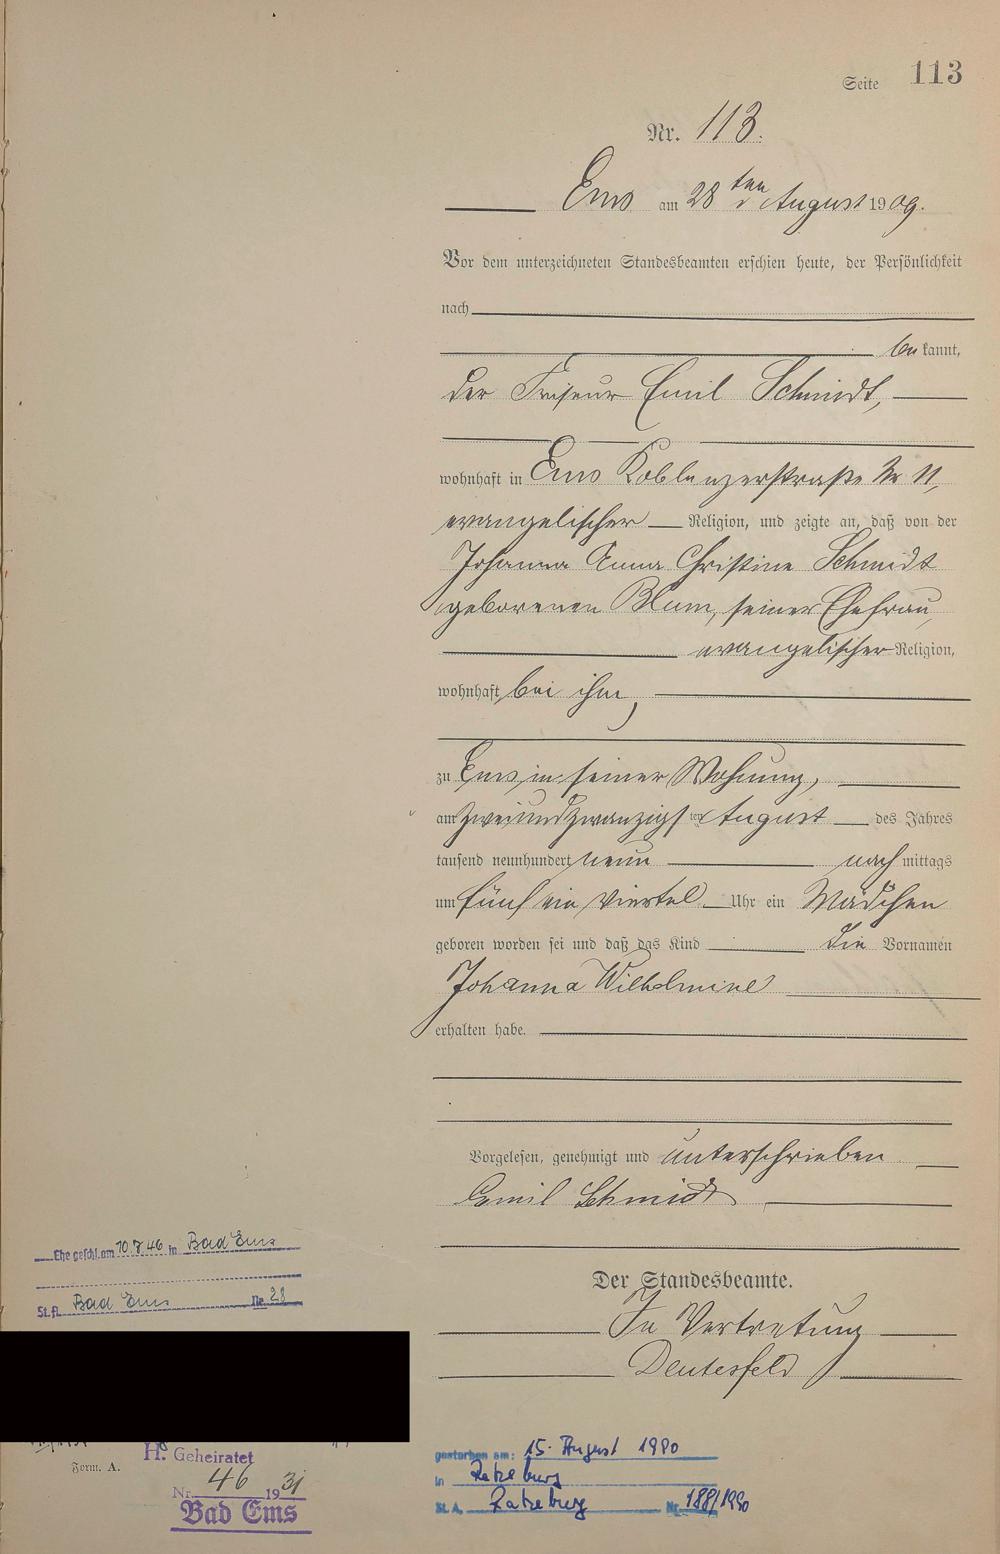 Seite 113
Nr. 113.
Ems am 28ten August 1909.
Vor dem unterzeichneten Standesbeamten erschien heute, der Persönlichkeit
nach
bekannt,
der Friseur Emil Schmidt,
wohnhaft in Ems Koblenzerstraße Nr 11,
evangelischer Religion, und zeigte an, daß von der
Johanna Anna Christine Schmidt
geborenen Blum, seiner Ehefrau,
evangelischer Religion,
wohnhaft bei ihm,
zu Ems in seiner Wohnung,
am zweiundzwanzigsten August des Jahres
tausend neunhundert neun nachmittags
um fünf ein viertel Uhr ein Mädchen
geboren worden sei und daß das Kind die Vornamen
Johanna Wilhelmine
erhalten habe.
Vorgelesen, genehmigt und unterschrieben
Emil Schmidt
Der Standesbeamte.
In Vertretung
Deutesfeld
Ehe geschl. am 10.8.46 in Bad Ems
St.A. Bad Ems Nr. 28
Form. A.
H. Geheiratet
Nr. 46 1931
Bad Ems
gestorben am: 15. August 1990
in Ratzeburg
St. A. Ratzeburg Nr. 188/1990